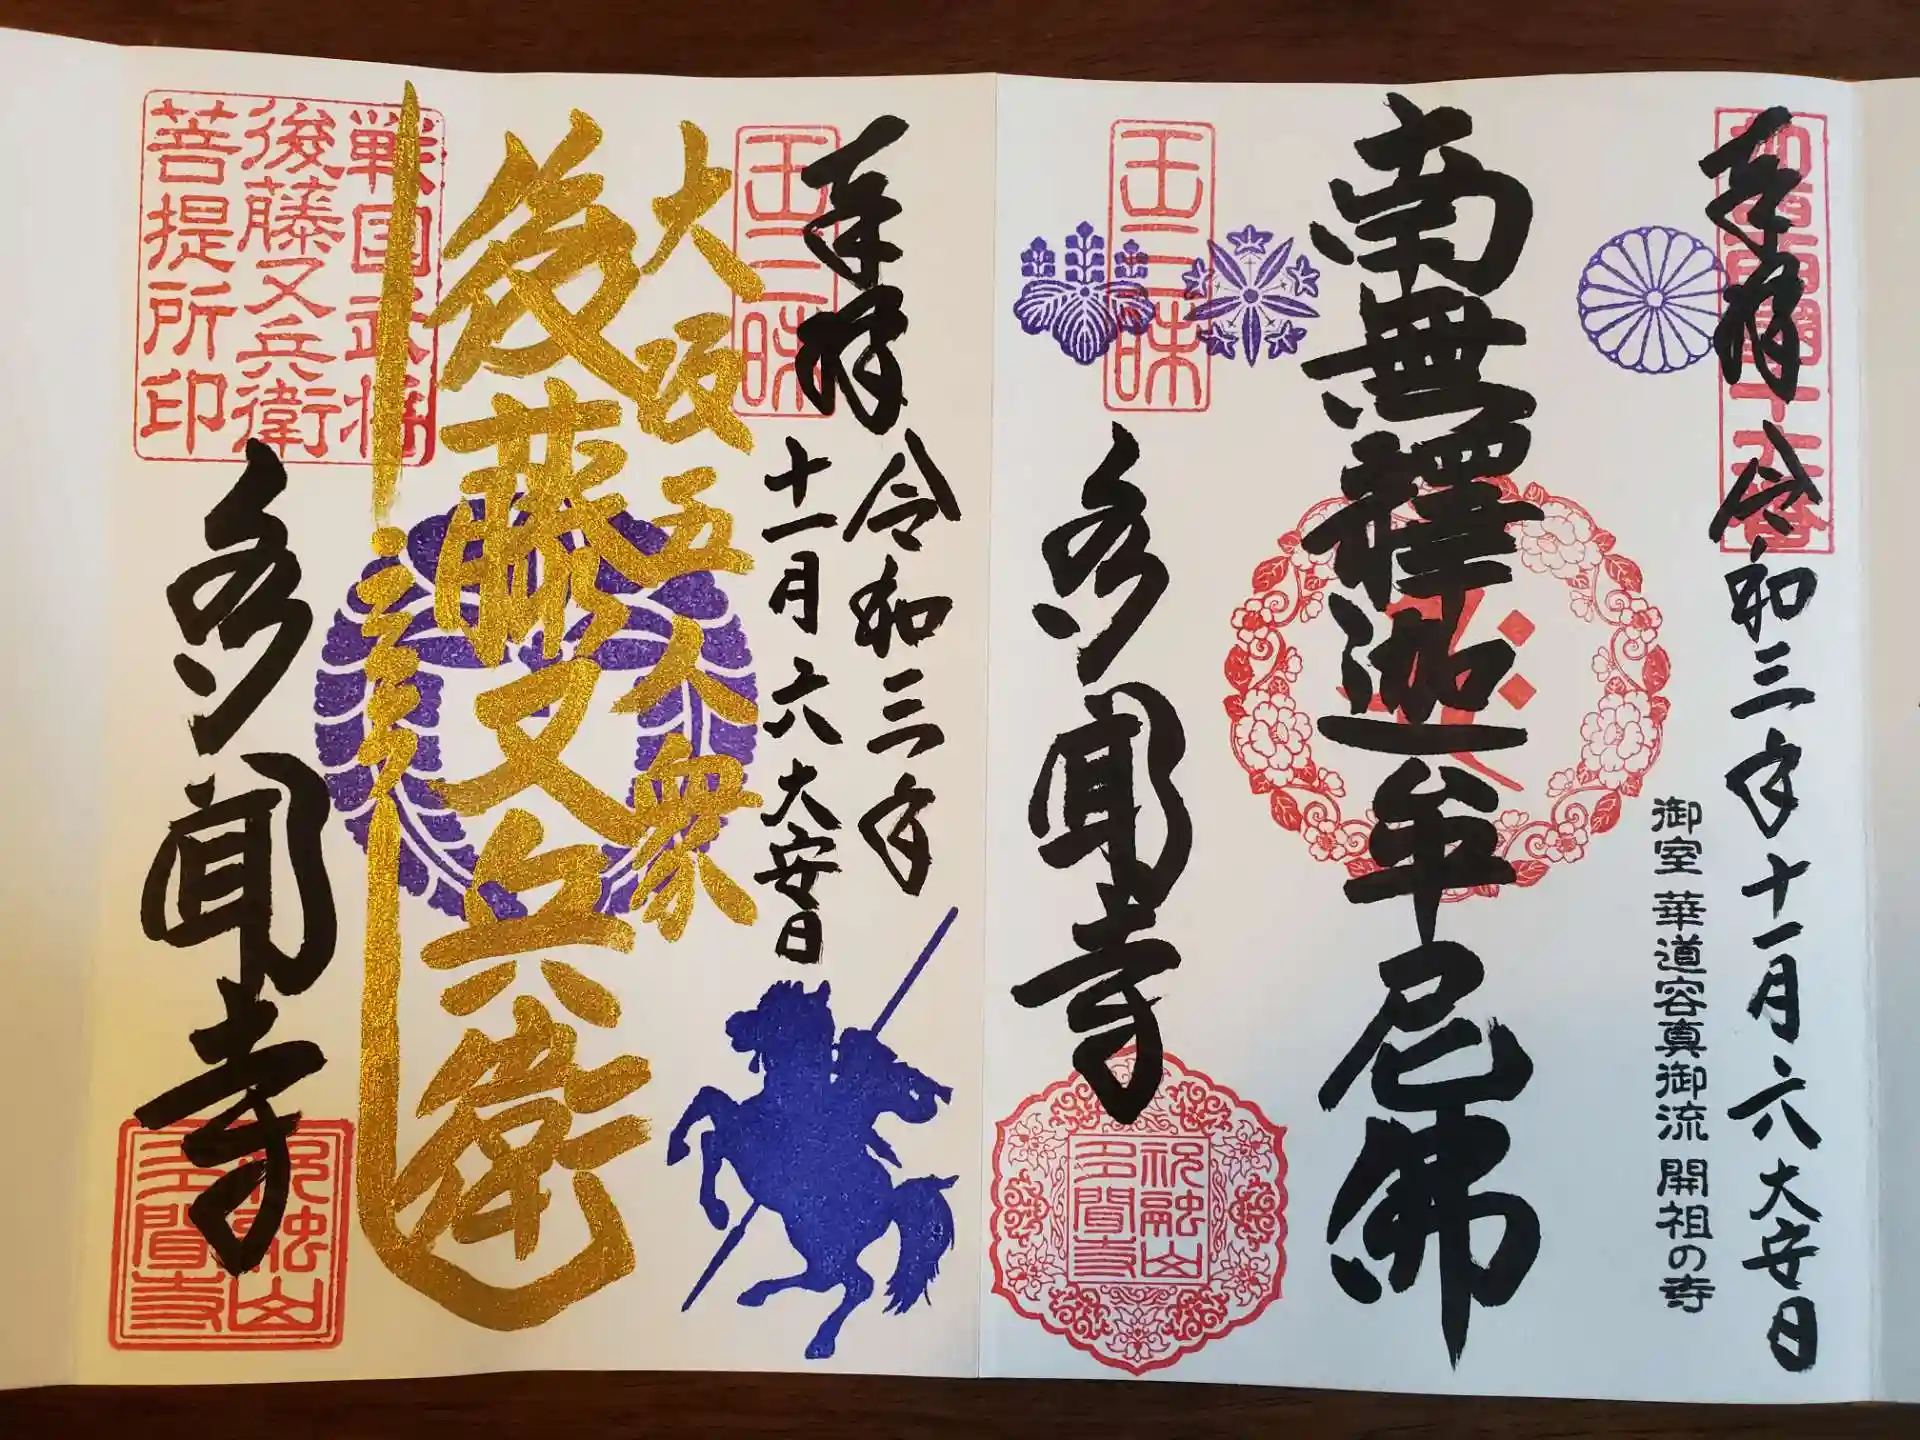 奉拝
令和三年十一月六大安日
御室 華道容真御流 開祖の寺
南無釋迦牟尼佛
王三昧
多聞寺
祝融山
多聞寺
奉拝
令和三年
十一月六大安日
王三昧
大坂五人衆
後藤又兵衛
戦国武将
後藤又兵衛
菩提所印
多聞寺
祝融山
多聞寺